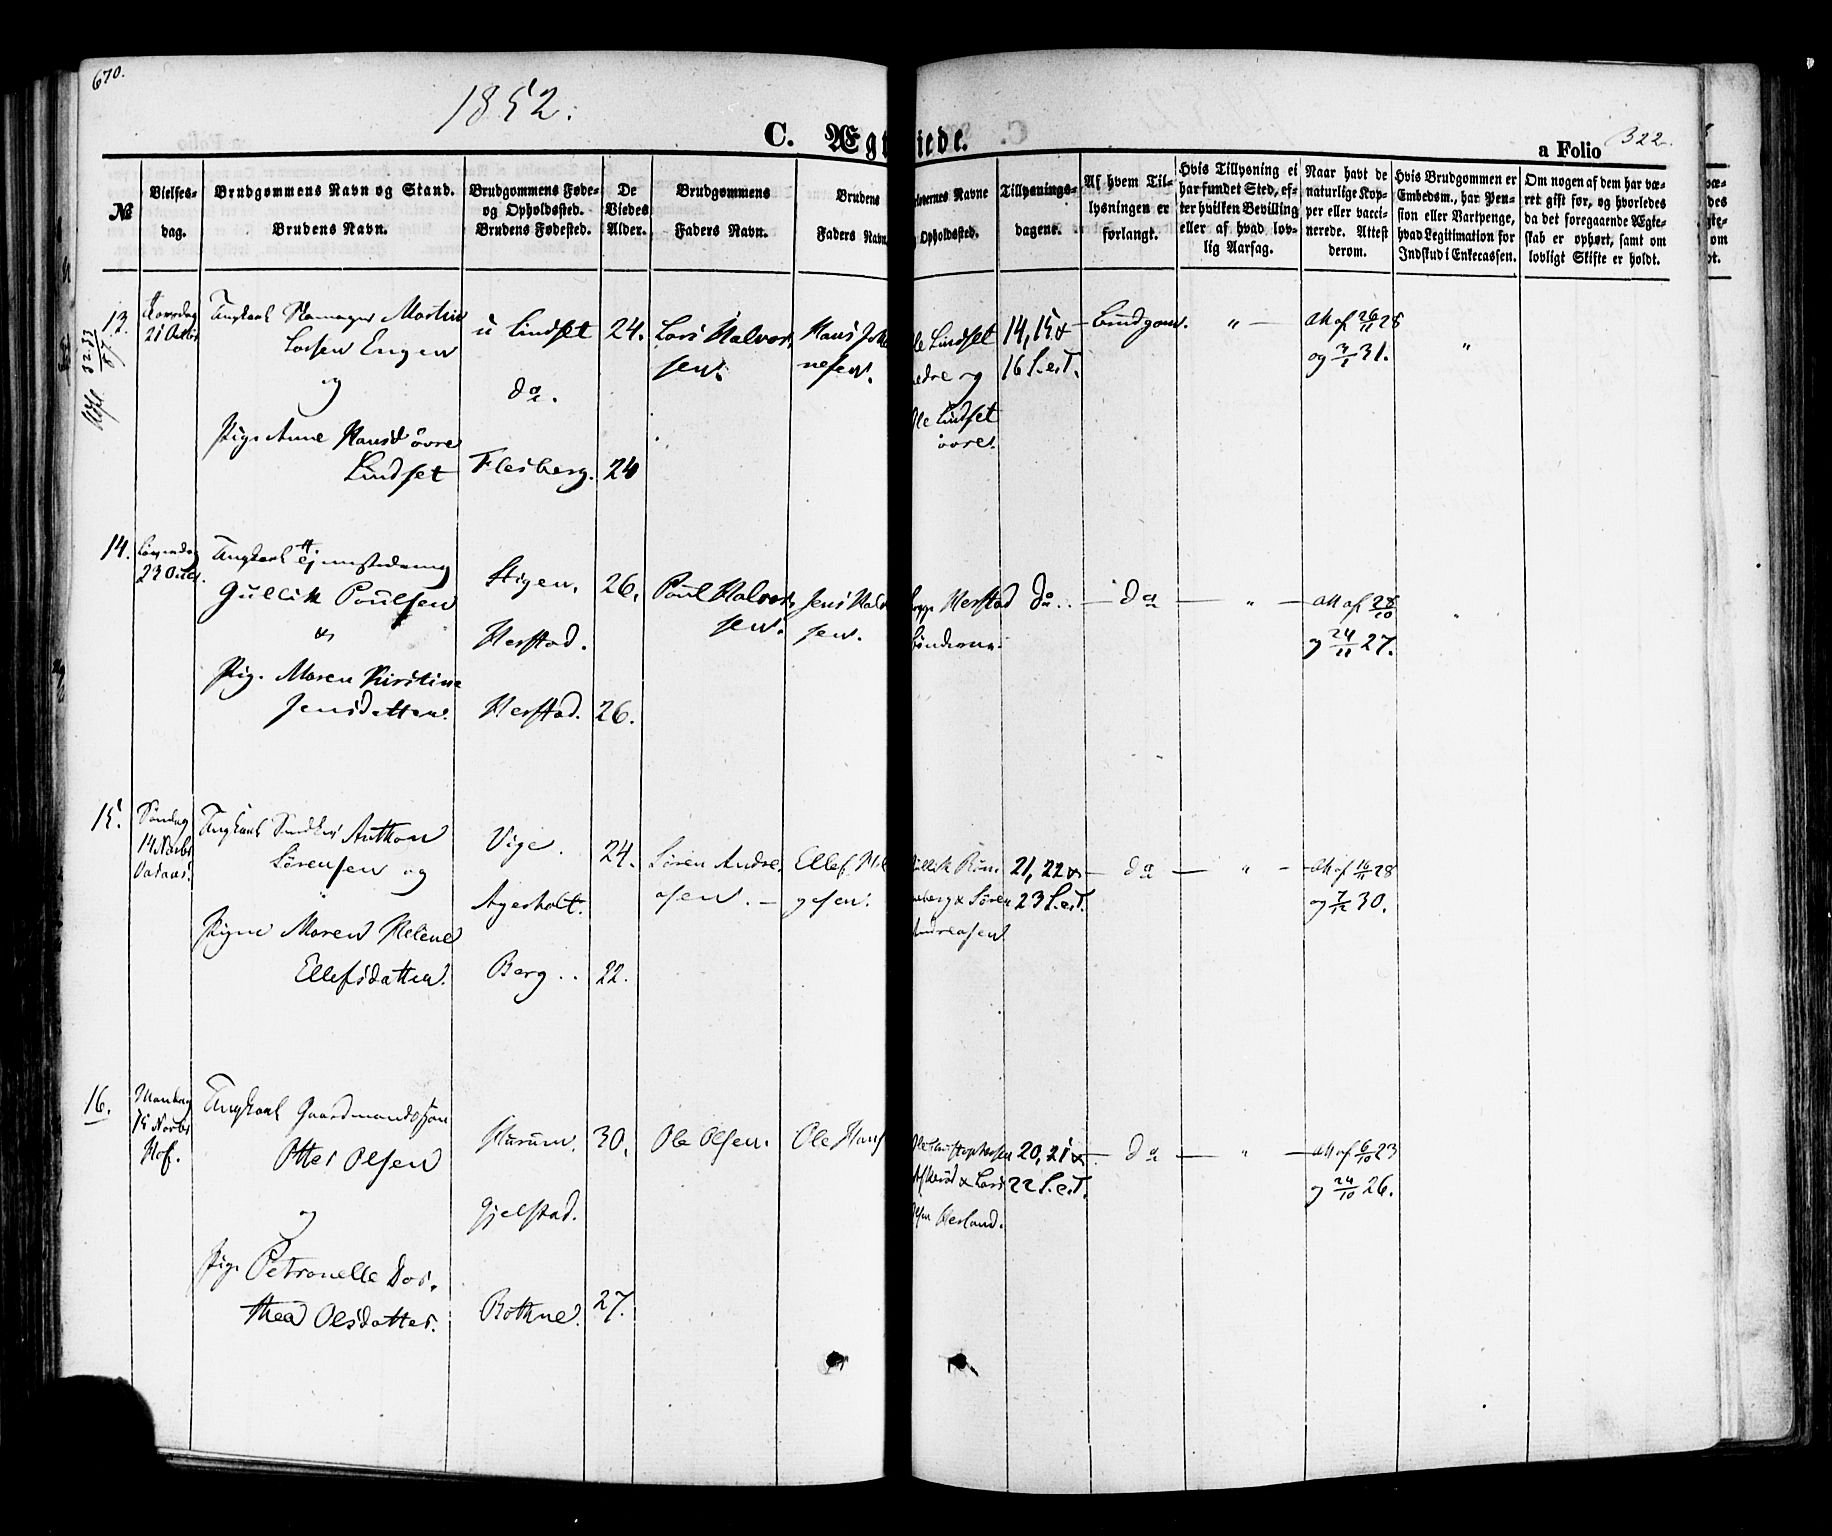 670.
1852.
C. Ægt
iede.
a Folio 322.
№
Vielses-
dag.
Brudgommens Navn og Stand.
Brudens Navn.
Brudgommens Føde-
og Opholdssted.
Brudens Fødested.
De
Viedes
Alder.
Brudgommens
Faders Navn.
Brudens
Faders Navn
loternes Navne
Opholdssted.
Tillysnings-
dagene.
Af hvem Til-
lysningen er
forlangt.
Hvis Tillysning ei
har fundet Sted, ef-
ter hvilken Bevilling
eller af hvad lov-
lig Aarsag.
Naar havt de
naturlige Kop-
per eller vacci-
nerede. Attest
derom.
Hvis Brudgommen er
Embedsm., har Pen-
sion eller Vartpenge,
hvad Legitimation for
Indskud i Enkecassen.
Om nogen af dem har væ-
ret gift før, og hvorledes
da det foregaaende Ægte-
skab er ophørt, samt om
lovligt Skifte er holdt.
13.
21 Octbr
Ungkarl Martin
Larsen Engen
og
Pige Anne Hansd øvre
Lindset
u Lindset
do.
Flesberg.
24.
24
Lars Halvor-
sen.
Hans Joh
nesen.
le Lindset
edre og
Ole Lindset
øvre.
14, 15 &
16 S.e.T.
Brudgom.
"
Att af 26/11 28
og 3/1 31.
"
14.
23 Octbr.
Ungkarl
Gullik Poulsen
&
Pige Maren Kirstine
Jensdatter.
Stigen.
Herstad.
Herstad.
26.
26.
Poul Halvor-
sen.
Jens Halv
sen.
Herstad
do..
do
"
Att af 28/10
og 24/11 27.
"
15.
Søndag
14 Novbr
Vadaas.
Ungkarl Anthon
Sørensen og
Pigen Maren Helene
Ellefsdatter.
Vige.
Agerholt.
Berg..
24.
22.
Søren Andre-
asen.
Ellef Hel
gesen.
Gullik Rønn
eberg & Søren
Andreasen
21, 22 &
23 S.e.T.
do
"
Att af 16/11 28
og 7/12 30.
16.
Mandag
15 Novbr
Hof.
Ungkarl Gaardmandssøn
Otter Olsen
og
Pige Petronelle Dor-
thea Olsdatter.
Sturum.
Gjelstad.
Bothne.
30.
27.
Ole Olsen.
Ole Hans
Ole Christophersen
& Lars
Olsen Oerland.
20, 21 &
22 S.e.T.
do
"
Att af 6/10 23
og 24/10 26.